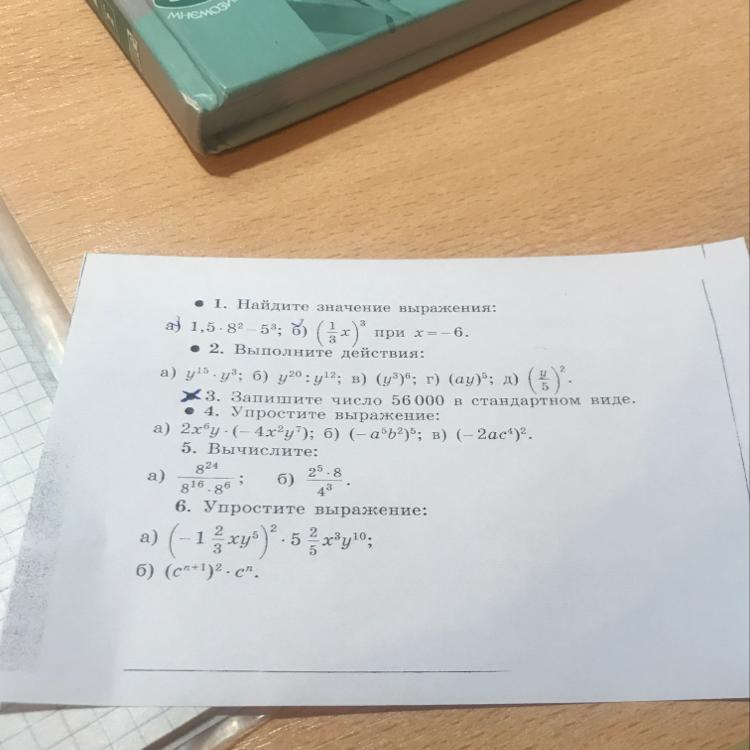 МНЕМОЗИ
• 1. Найдите значение выражения:
а) 1,5 · 8² – 5³; б) (1/3 x)³ при x = –6.
• 2. Выполните действия:
а) y¹⁵ · y³; б) y²⁰ : y¹²; в) (y³)⁶; г) (ay)⁵; д) (y/5)².
3. Запишите число 56 000 в стандартном виде.
• 4. Упростите выражение:
а) 2x⁶y · (– 4x²y⁷); б) (– a⁵b²)⁵; в) (– 2ac⁴)².
5. Вычислите:
а) 8²⁴/(8¹⁶ · 8⁶); б) (2⁵ · 8)/4³.
6. Упростите выражение:
а) (–1 2/3 xy⁵)² · 5 2/5 x³y¹⁰;
б) (cⁿ⁺¹)² · cⁿ.